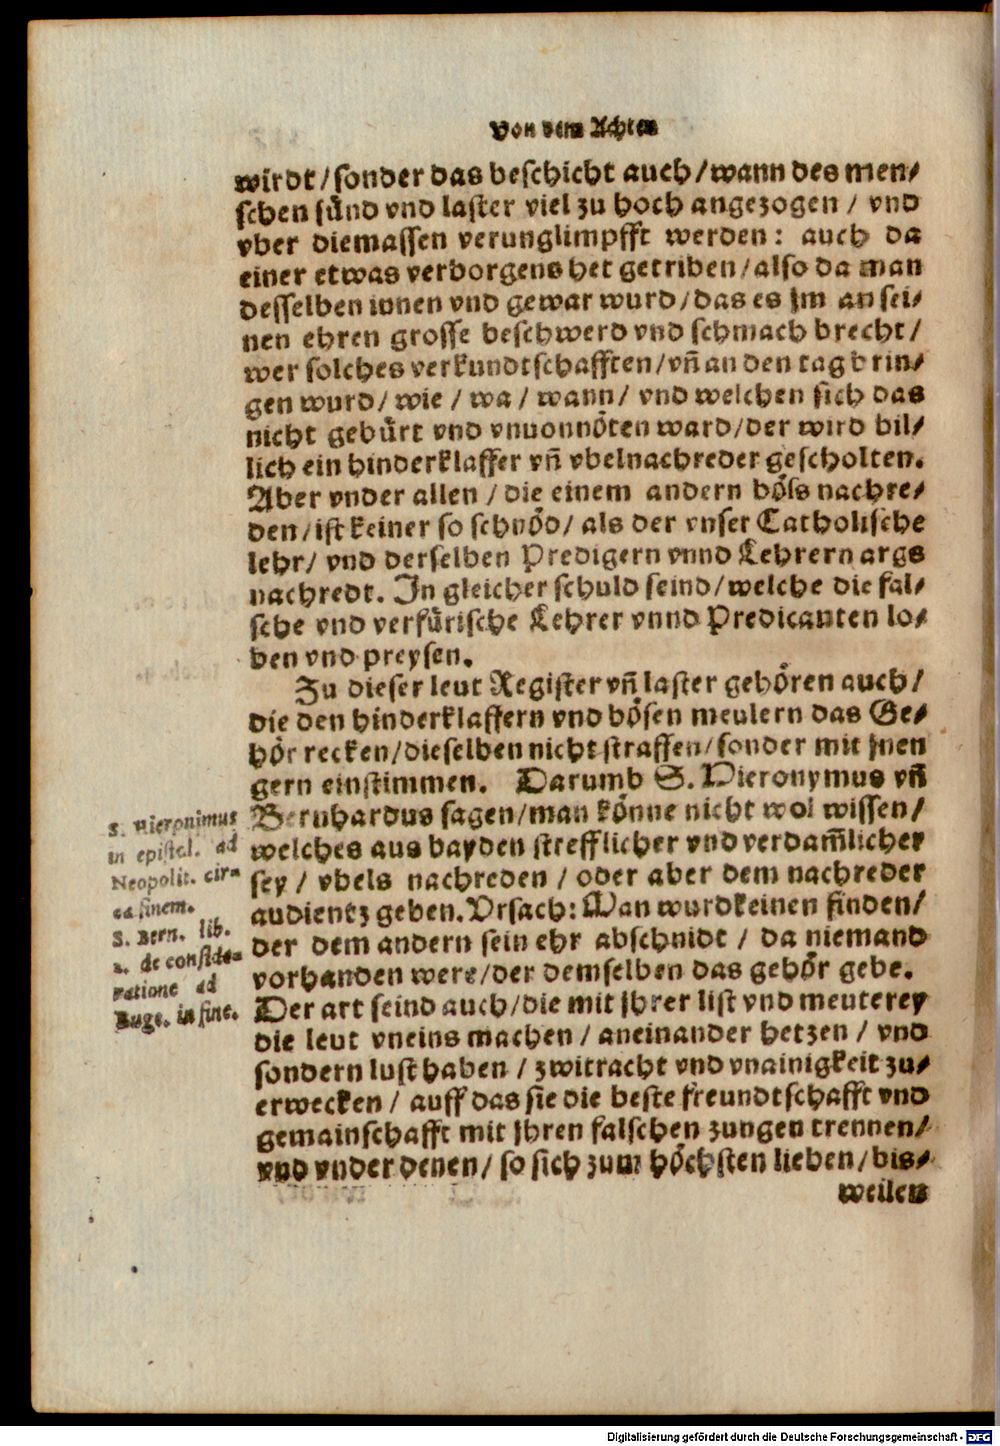 Von dem Achten
wirdt/sonder das beschicht auch/wann des men⸗
schen sünd vnd laster viel zu hoch angezogen / vnd
vber diemassen verunglimpfft werden: auch da
einer etwas verborgens het getriben/also da man
desselben innen vnd gewar wurd/das es jm an sei⸗
nen ehren grosse beschwerd vnd schmach brecht/
wer solches verkundtschafften/vñ an den tag brin⸗
gen wurd/ wie / wa / wann/ vnd welchen sich das
nicht gebürt vnd vnuonnöten ward/der wird bil⸗
lich ein hinderklaffer vñ vbelnachreder gescholten.
Aber vnder allen / die einem andern böls nachre⸗
den/ist keiner so schnöd/ als der vnser Catholische
lehr/ vnd derselben Predigern vnnd Lehrern args
nachredt. In gleicher schuld seind/welche die fal⸗
sche vnd verfürische Lehrer vnnd Predicanten lo⸗
ben vnd preysen.
Zu dieser leut Register vñ laster gehören auch/
die den hinderklaffern vnd bösen meulern das Ge⸗
hör recken/dieselben nicht straffen/sonder mit jnen
gern einstimmen. Darumb S. Hieronymus vñ
Bernhardus sagen/man könne nicht wol wissen/
welches aus bayden strefflicher vnd verdam̃licher
sey / vbels nachreden / oder aber dem nachreder
audientz geben. Vrsach: Man wurd keinen finden/
der dem andern sein ehr abschnidt / da niemand
vorhanden were/der demselben das gehör gebe.
Der art seind auch/die mit jhrer list vnd meuterey
die leut vneins machen / aneinander hetzen / vnd
sondern lust haben / zwitracht vnd vnainigkeit zu⸗
erwecken / auff das sie die beste freundtschafft vnd
gemainschafft mit jhren falschen zungen trennen/
vnd vnder denen/ so sich zum höchsten lieben/bis⸗
weilen
S. Hieronimus
in epistol. ad
Neopolit. cir⸗
ca finem.
S. Bern. lib.
2. de conside⸗
ratione ad
Euge. in fine.
Digitalisierung gefördert durch die Deutsche Forschungsgemeinschaft - DFG